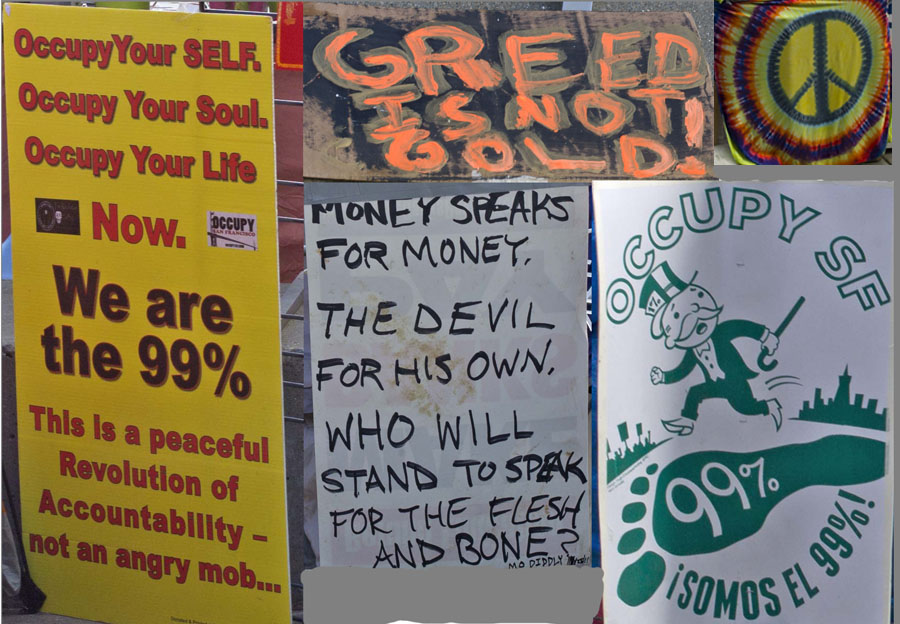 OccupyYour SELF.
Occupy Your Soul.
Occupy Your Life
Now.
OCCUPY
SAN FRANCISCO
We are
the 99%
This is a peaceful
Revolution of
Accountability –
not an angry mob...
GREED
IS NOT
GOLD.
MONEY SPEAKS
FOR MONEY.
THE DEVIL
FOR HIS OWN.
WHO WILL
STAND TO SPEAK
FOR THE FLESH
AND BONE?
MO DIDDLY
OCCUPY SF
1%
99%
¡SOMOS EL 99%!